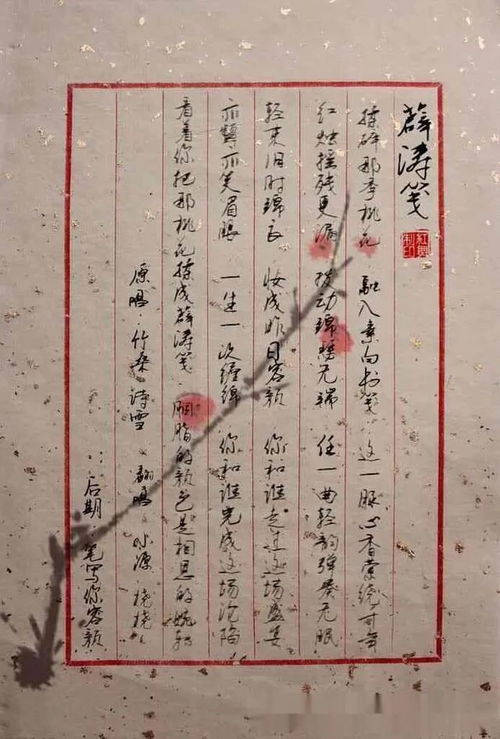 薛涛笺
揉碎那季桃花 融入素白书笺 这一脉心香萦绕可年
红烛摇残更漏 拨动锦瑟无端 任一曲轻韵弹奏无眠
轻束旧时锦衣 妆成昨日容颜 你和谁走过这场盛宴
亦颦亦笑眉眼 一生一次缠绵 你和谁完成这场沦陷
看着你把那桃花揉成薛涛笺 胭脂的颜色是相思的婉转
原唱 竹桑 诗雪 翻唱 水源
后期 笔写你容颜